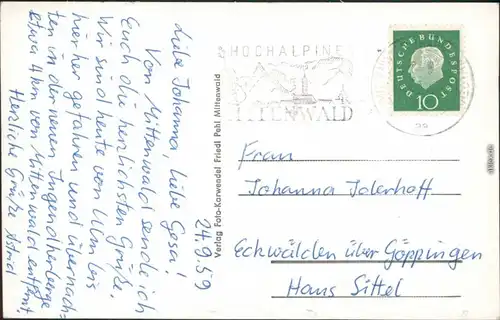 24.9.59
Liebe Johanna, liebe Gesa!
Von Mittenwald sende ich
Euch die herzlichsten Grüße.
Wir sind heute von Ulm bis
hierher gefahren und übernach-
ten in der neuen Jugendherberge
etwa 4 km von Mittenwald entfernt
Herzliche Grüße Astrid
Verlag Foto-Karwendel Friedl Pehl Mittenwald
HOCHALPINE
MITTENWALD
DEUTSCHE BUNDESPOST
10
Frau
Johanna Iderhoff
Eckwälden über Göppingen
Haus Sittel